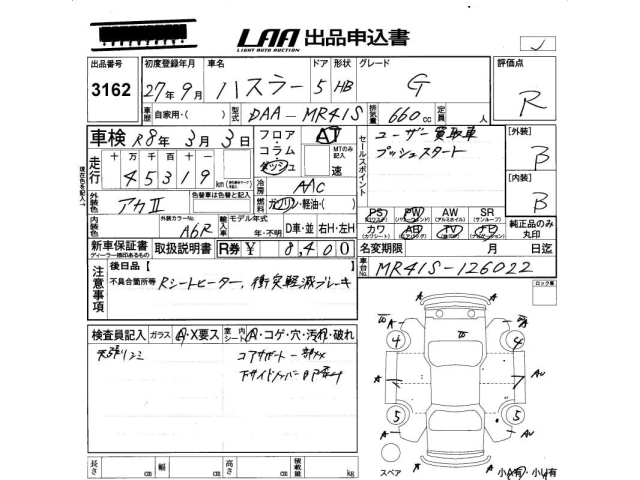 LAA 出品申込書
LIGHT AUTO AUCTION
出品番号 初度登録年月 車名 ドア 形状 グレード 評価点
3162 27年 9月 ハスラー 5 HB G R
車歴 自家用・( ) 型式 DAA-MR41S 排気量 660cc 定員 人
車検 R8年 3月 3日 フロア・コラム・ダッシュ AT セールスポイント ユーザー買取車 [外装] B
MTのみ記入 速 プッシュスタート
現在色を記入
走行 十万 万 千 百 十 一
45319 km 冷房 AAC [内装] B
外装色 アカII 色替車は色替と記入 燃料 ガソリン・軽油・( )
PS PW AW SR
(パワーウインド) (アルミホイル) (サンルーフ)
外装カラーNo. A6R 輸入車 モデル年式 年・不明 D車・並 右H・左H カワ AB TV ナビ 純正品のみ丸印
新車保証書 取扱説明書 R券 ¥ 8,400 名変期限 月 日迄
ディーラー捺印あるもの
車台No. MR41S-126022
注意事項 後日品【
不具合箇所等 Rシートヒーター、衝突軽減ブレーキ
ロック車
検査員記入 ガラス A・X要ス 室内シート A・コゲ・穴・汚れ・破れ
天張りシミ コアサポート一部××
4 4
A A
A A AU
5 5
A AU
長さ cm 幅 cm 高さ cm 積載量 kg
スペア 小A有・小U有